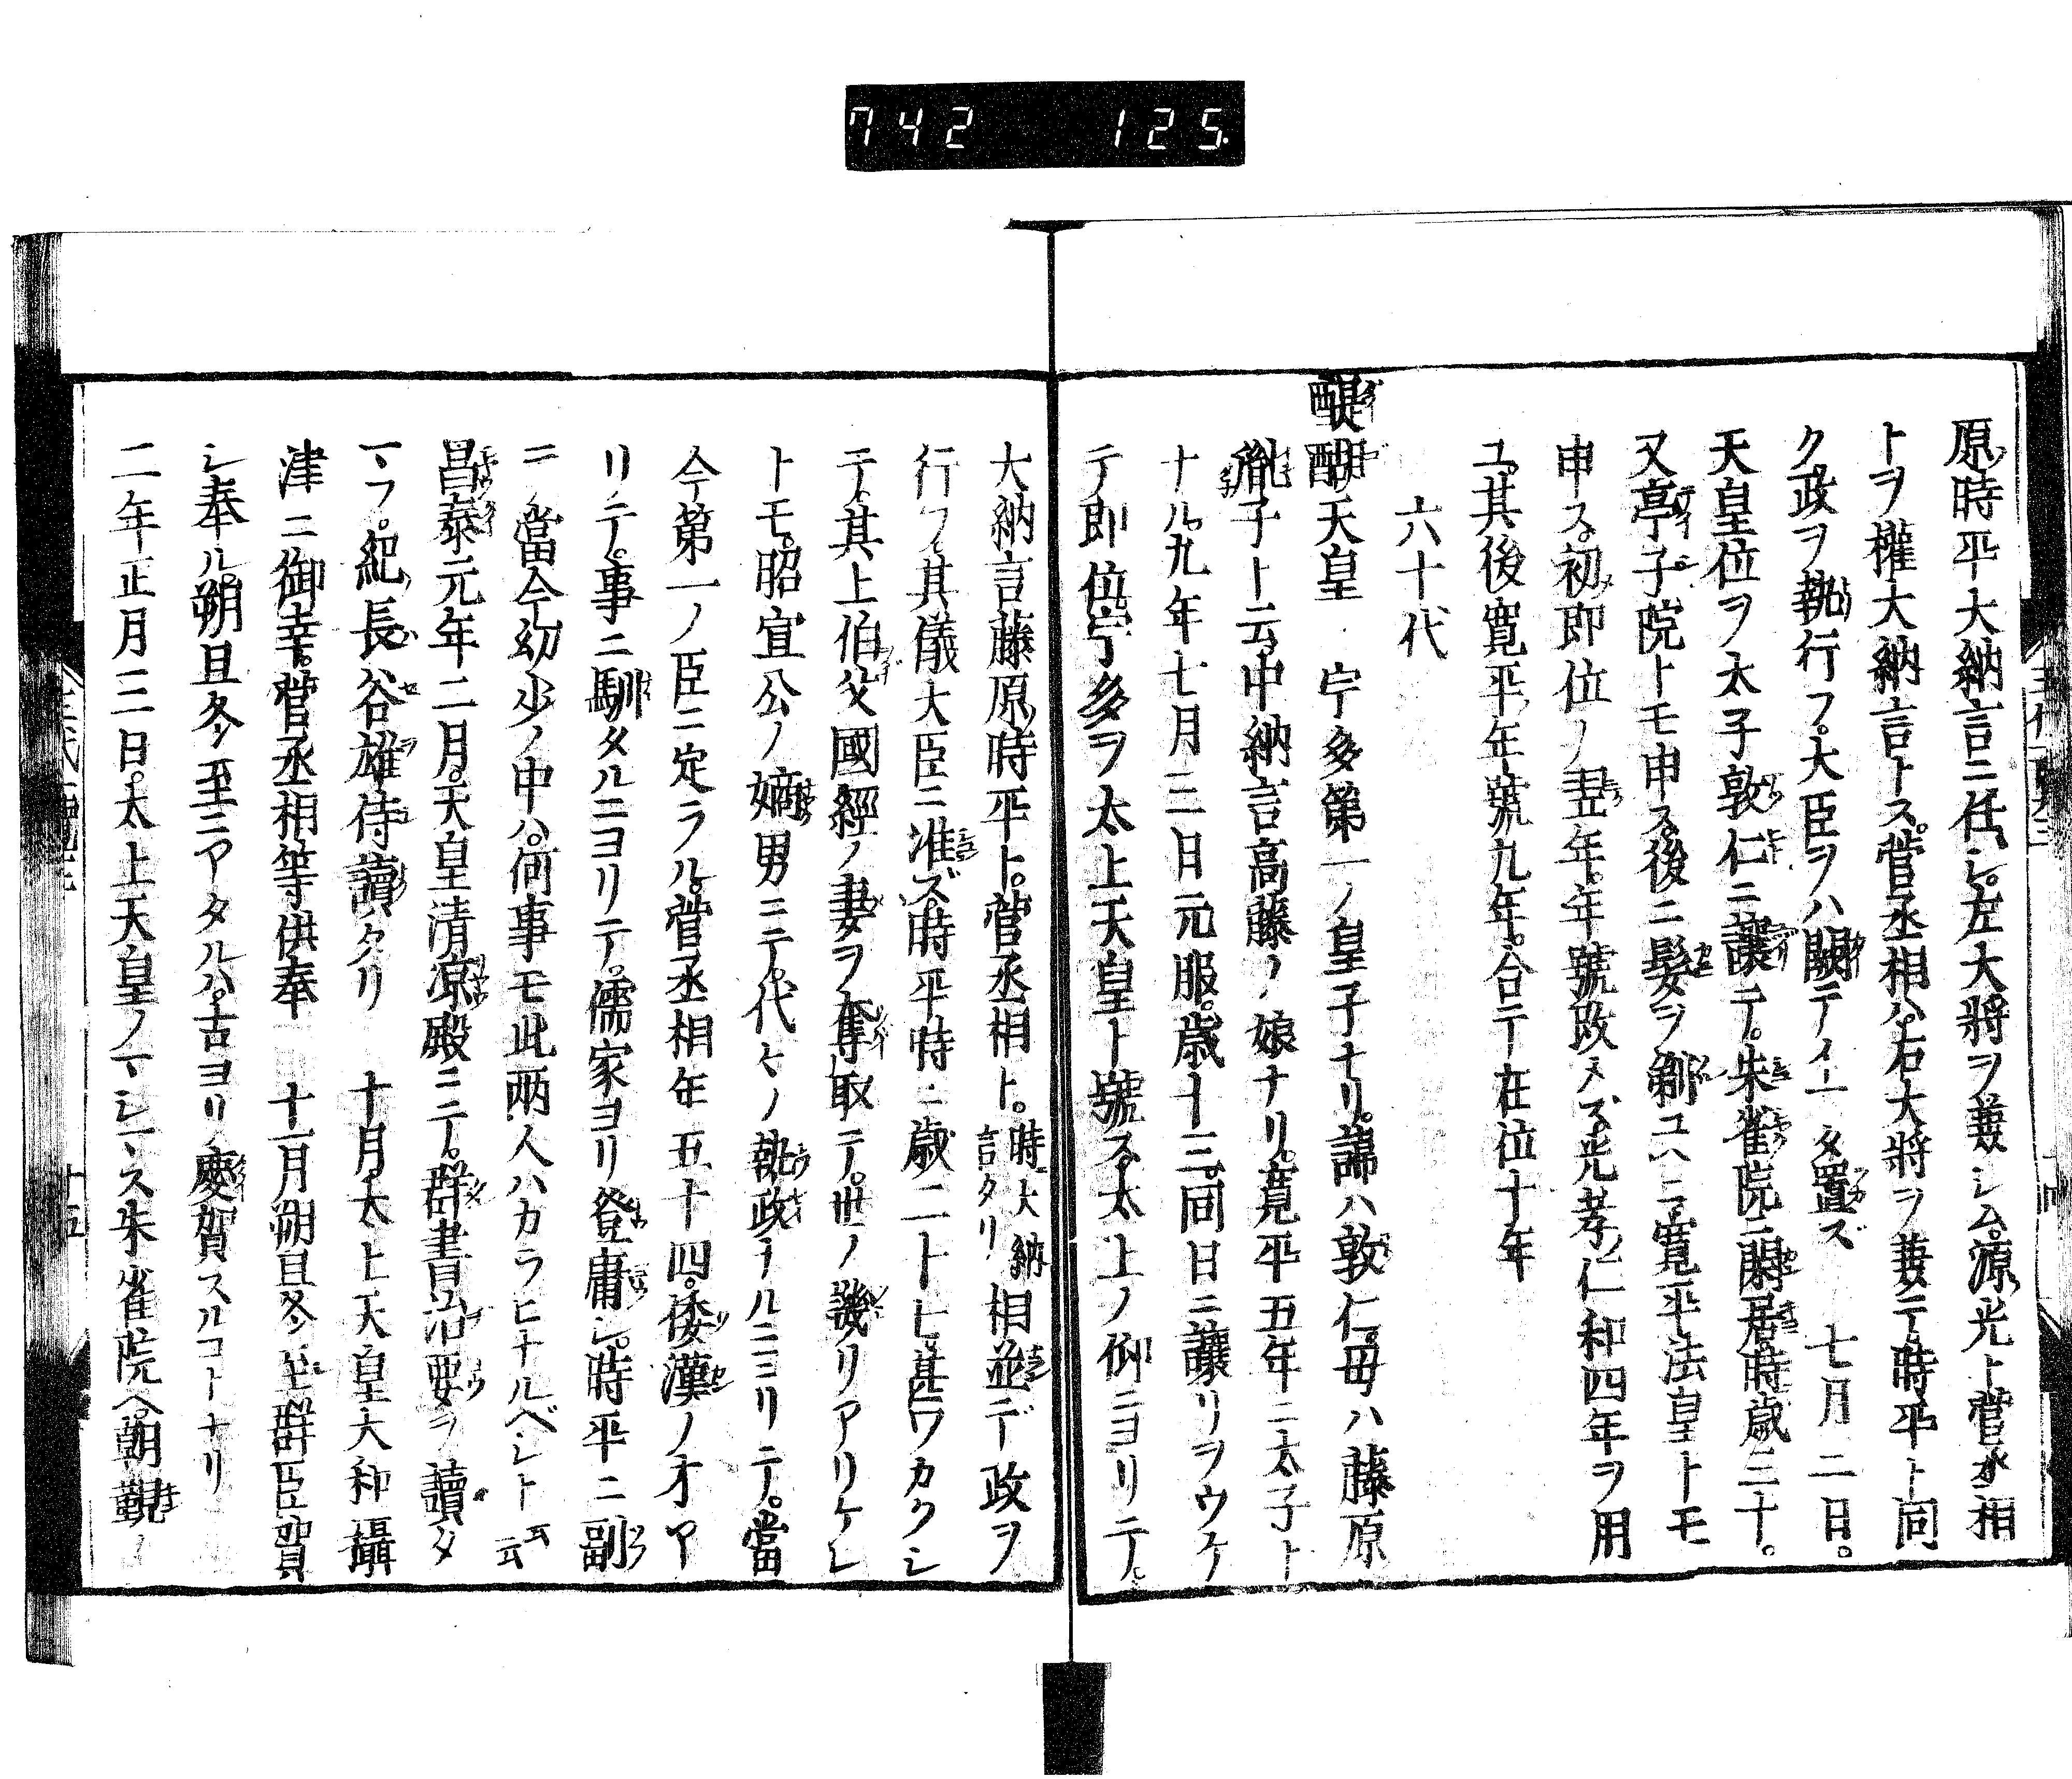 742 125.
原ノ時平大納言ニ任シ。左大將ヲ兼シム。源ノ光ト菅丞相
トヲ權大納言トス。菅丞相ハ。右大將ヲ兼テ。時平ト同
ク政ヲ執行フ。大臣ヲハ闕テイマタ置ズ 七月二日。
天皇位ヲ太子敦仁ニ讓テ。朱雀院ニ閑居。時歳三十。
又亭子院トモ申ス。後ニ髮ヲ剃ユヘニ。寛平法皇トモ
申ス。初メ即位ノ翌年。年號改メズ。光孝ノ仁和四年ヲ用
ユ。其後寛平ノ年號九年。合テ在位十年
六十代
醍醐天皇 宇多第一ノ皇子ナリ。諱ハ敦仁。母ハ藤原
胤子ト云。中納言高藤ノ娘ナリ。寛平五年ニ太子ト
ナル。九年七月三日元服。歳十三。同日ニ讓リヲウケ
テ即位。宇多ヲ太上天皇ト號ス。太上ノ例ニヨリテ。
大納言藤原ノ時平ト。菅丞相ト。時ニ大納言タリ相並デ政ヲ
行フ。其儀大臣ニ准ズ。時平時ニ歳二十七。甚ワカクシ
テ。其上伯父國經ノ妻ヲ奪取テ。世ノ譏リアリケレ
トモ。昭宣公ノ嫡男ニテ。代々ノ執政ナルニヨリテ。當
今第一ノ臣ニ定ラル。菅丞相年五十四。倭漢ノ才ア
リテ。事ニ馴タルニヨリテ。儒家ヨリ登庸シ。時平ニ副
ニ。當今幼少ノ中ハ。何事モ此兩人ハカラヒナルベシト云云
昌泰元年二月。天皇清凉殿ニテ。群書治要ヲ讀タ
マフ。紀ノ長谷雄侍讀タリ 十月。太上天皇大和攝
津ニ御幸。菅丞相等供奉 十一月朔旦冬至。群臣賀
シ奉ル。朔旦冬至ニアタルハ。古ヨリ慶賀スルコトナリ
二年正月三日。太上天皇ノマシマス朱雀院ヘ。朝覲ノ
十五